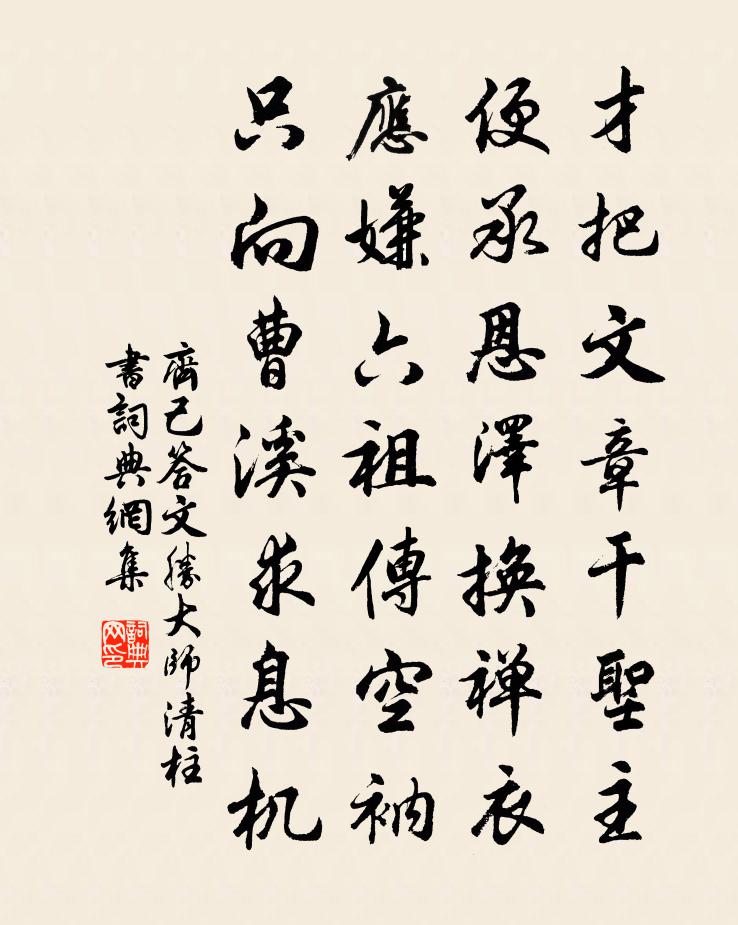 才把文章干聖主
便承恩澤換禪衣
應嫌六祖傳空衲
只向曹溪求息机
齊己答文勝大師清柱
書詞典網集
詞典网印